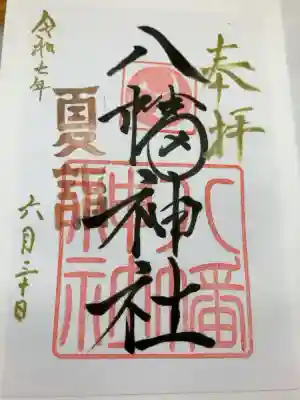 奉拝
八幡神社
夏詣
令和七年
六月三十日
八幡
神社